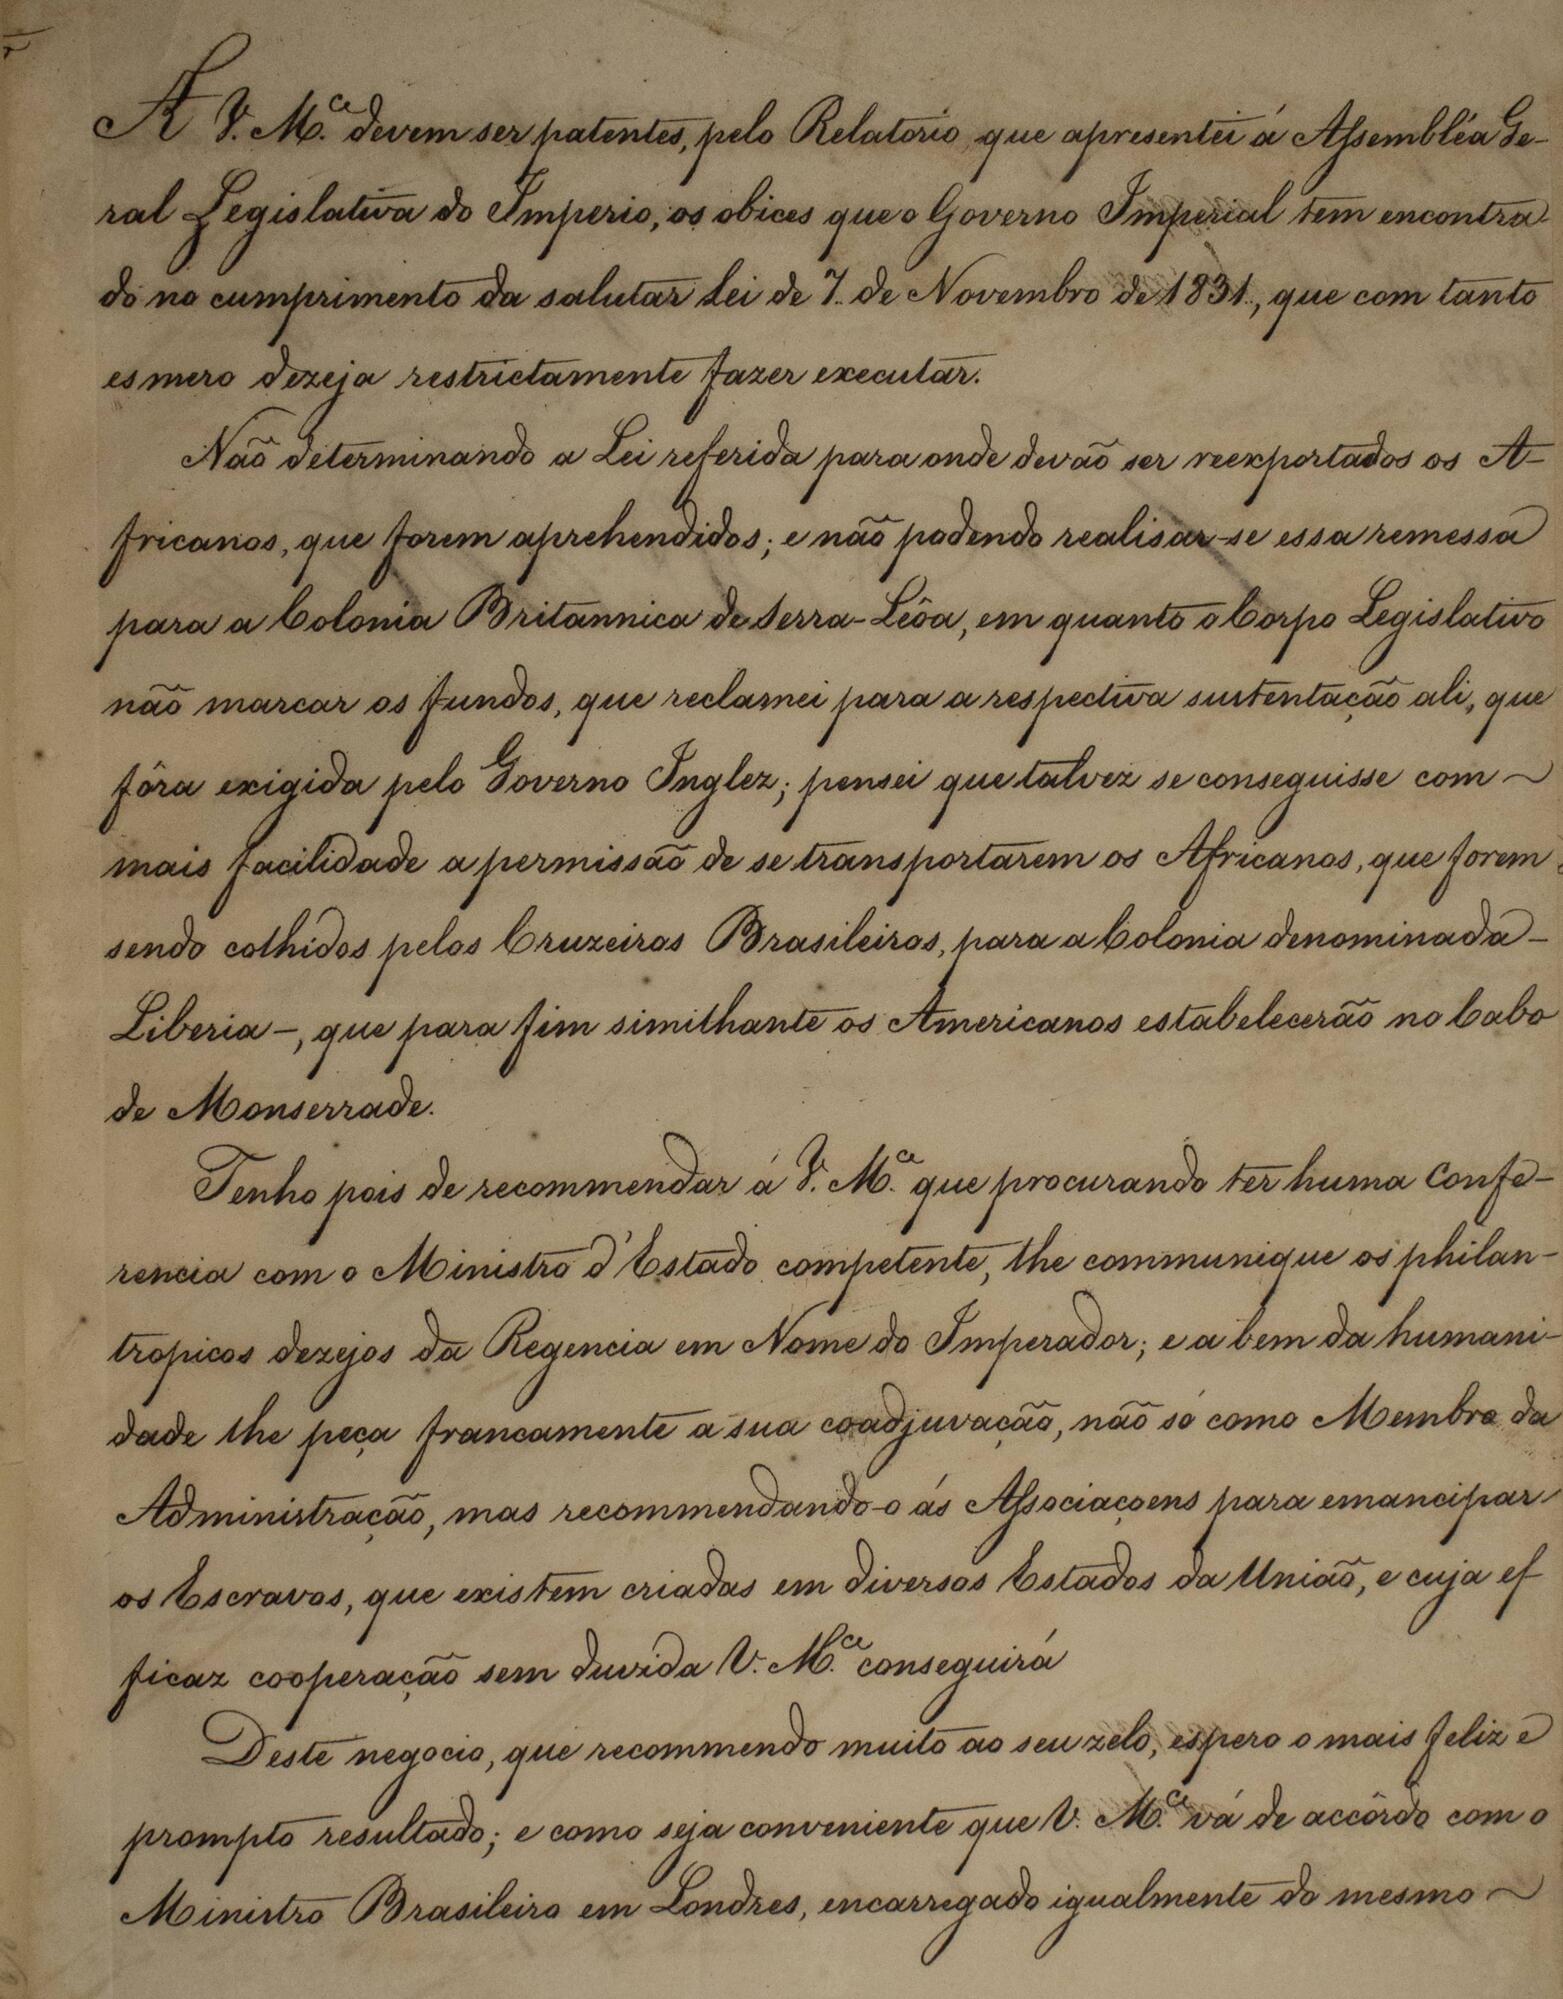 A V. M.ce devem ser patentes, pelo Relatorio que apresentei á Assembléa Ge-
ral Legislativa do Imperio, os obices que o Governo Imperial tem encontra-
do no cumprimento da salutar Lei de 7. de Novembro de 1831., que com tanto
esmero dezeja restrictamente fazer executar.
Não determinando a Lei referida para onde devão ser reexportados os A-
fricanos, que forem aprehendidos; e não podendo realisar-se essa remessa
para a Colonia Britannica de Serra-Lêôa, em quanto o Corpo Legislativo
não marcar os fundos, que reclamei para a respectiva sustentação ali, que
fôra exigida pelo Governo Inglez; pensei que talvez se conseguisse com ~
mais facilidade a permissão de se transportarem os Africanos, que forem
sendo colhidos pelos Cruzeiros Brasileiros, para a Colonia denominada -
Liberia -, que para fim similhante os Americanos estabelecerão no Cabo
de Monserrade.
Tenho pois de recommendar á V. M.ce que procurando ter huma Confe-
rencia com o Ministro d'Estado competente, lhe communique os philan-
tropicos dezejos da Regencia em Nome do Imperador; e a bem da humani-
dade lhe peça francamente a sua coadjuvação, não só como Membro da
Administração, mas recommendando-o ás Associaçoens para emancipar
os Escravos, que existem criadas em diversos Estados da União, e cuja ef
ficaz cooperação sem duvida V. M.ce conseguirá
Deste negocio, que recommendo muito ao seu zelo, espero o mais feliz e
prompto resultado; e como seja conveniente que V. M.ce vá de accôrdo com o
Ministro Brasileiro em Londres, encarregado igualmente do mesmo ~